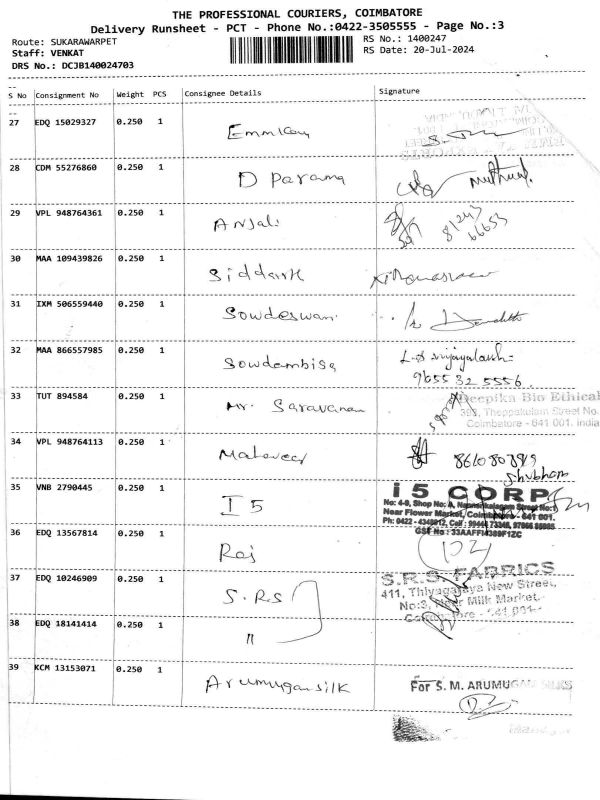 THE PROFESSIONAL COURIERS, COIMBATORE
Delivery Runsheet - PCT - Phone No.:0422-3505555 - Page No.:3
Route: SUKARAWARPET
RS No.: 1400247
Staff: VENKAT
RS Date: 20-Jul-2024
DRS No.: DCJB140024703
S No Consignment No Weight PCS Consignee Details Signature
27 EDQ 15029327 0.250 1
28 CDM 55276860 0.250 1 D Parama
29 VPL 948764361 0.250 1 Anjali
30 MAA 109439826 0.250 1 Siddarth
31 IXM 506559440 0.250 1 Sowdeswari
32 MAA 866557985 0.250 1 Sowdambiga
9655 32 5556
33 TUT 894584 0.250 1 Mr. Saravanan
Deepika Bio Ethical
393, Theppakulam Street No.
Coimbatore - 641 001. India
34 VPL 948764113 0.250 1 Mahaveer
Shubham
35 VNB 2790445 0.250 1 I 5
i 5 CORP
Near Flower Market, Coimbatore - 641 001.
36 EDQ 13567814 0.250 1 Raj
37 EDQ 10246909 0.250 1 S.RS
S.R.S. FABRICS
411, Thiyagaraya New Street,
No:3, Near Milk Market,
Coimbatore - 641 001
38 EDQ 18141414 0.250 1 "
39 KCM 13153071 0.250 1 Arumugan silk
For S. M. ARUMUGAN SILKS